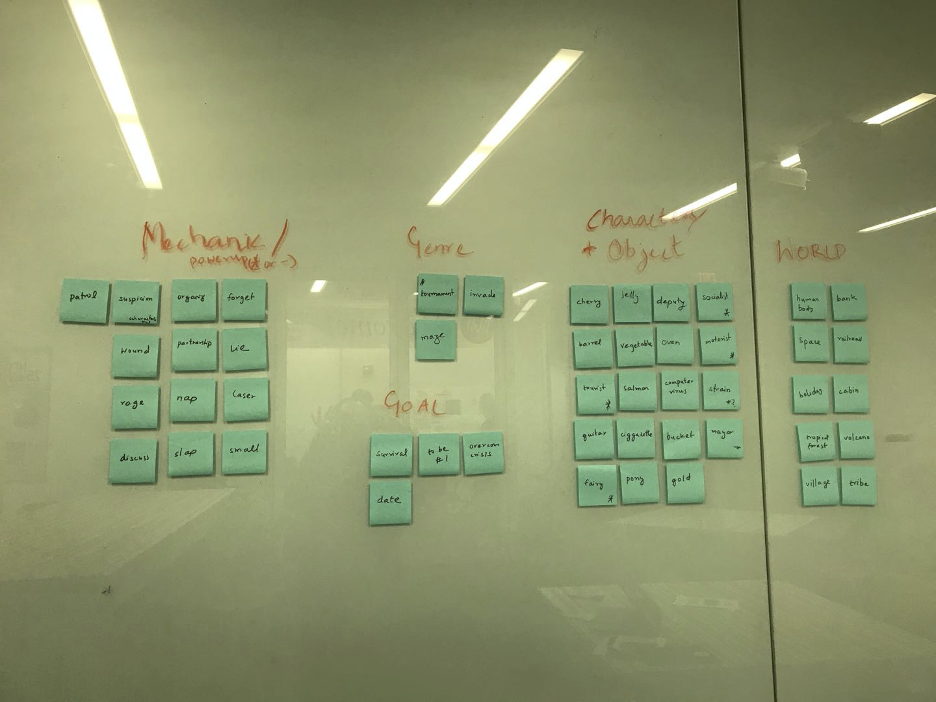 Mechanic/
powerup(+ or -)
patrol
suspicion
organiz
forget
wound
partnership
lie
rage
nap
laser
discuss
slap
small
Genre
tournament
invade
maze
GOAL
survival
to be
#1
overcom
crisis
date
Character/
+ Object
cherry
jelly
deputy
barrel
vegetable
oven
motorist
tourist
salmon
computer
virus
strain
guitar
ciggarette
bucket
mayor
fairy
pony
gold
WORLD
human
body
bank
space
railroad
holiday
cabin
tropid
forest
volcano
village
tribe